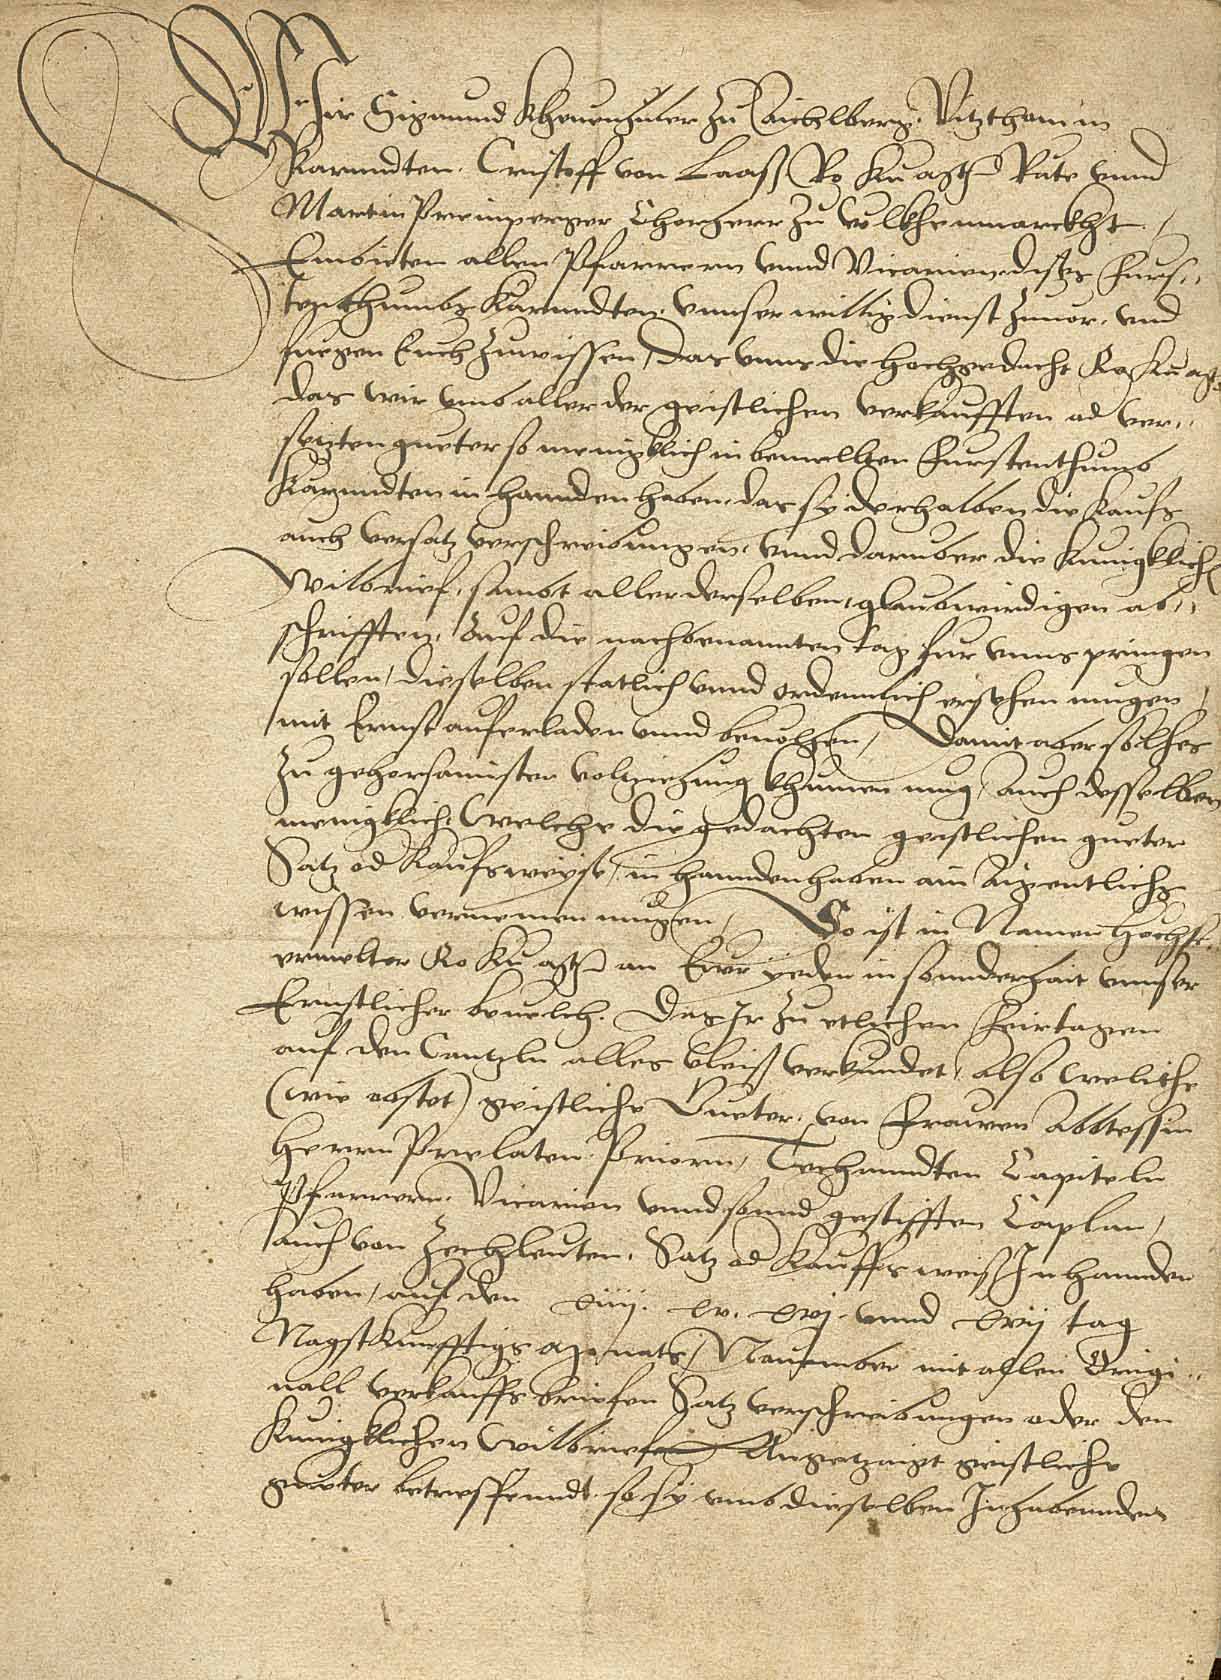 Wir Sigmund Kheuenhuler zu Aichlberg, Vitzthom in
Karnndten, Cristoff von Laaß Ro Ku Mt Räte vnnd
Martin Preinperger Chorherr zu Volkhenmarckht
Embieten allen Pfarrern vnnd Vicarien dises Furs-,,
tenthumbs Karnndten, Vnnser willig dienst zuuor, vnd
fuegen Euch zuwissen, Das vnns die hochgedacht Ro Ku Mt
das wir vmb aller der geistlichen verkaufften od ver,,
setzten gueter so menigklich in bemellten Furstenthumb
Karnndten in hannden haben, das sy derhalben die Kaufs
auch versatz verschreibungen, vnnd daruber die Kunigklich
Wilbrief, sambt aller derselben glaubwirdigen ab,,
schrifften, Auf die nachbenannten tag fur vnns pringen
sollen, dieselben statlich vnnd ordennlich ersehen mugen,
mit Ernst auferladen vnnd beuolhen, Damit aber solhes
zu gehorsamister volziehung khumen mug, auch desselben
menigklich Welche die gedachten geistlichen gueter
Satz od Kaufsweyse, in hannden haben ain aigentlichs
wissen vernemen mugen, So ist in Namen Hochst-
ermelter Ro Ku Mt an Eur yeden in sonnderhait vnnser
Ernstlicher beuelch. Das Ir zu etlichen Feirtagen
auf den Cantzln alles vleiß verkundet, also weliche
(wie obstet) geistliche Gueter, von Frawen Abbtessin
Herrn Prelaten, Priorn, Techanndten Capiteln
Pfarrern, Vicarien vnnd sonnd gestifften Caplan,
auch von Zechleuten, Satz od Kauffsweiß In hannden
haben, auf den xiiij. xv. xvj. vnnd xvij tag
Nagstkunfftigs Monats Nouember mit allen Origi,,
nall verkauffsbriefen Satz verschreibungen oder den
Kunigklichen Wilbriefen Angetzaigt geistliche
gueter betreffenndt, so sy vmb dieselben Inhabennden